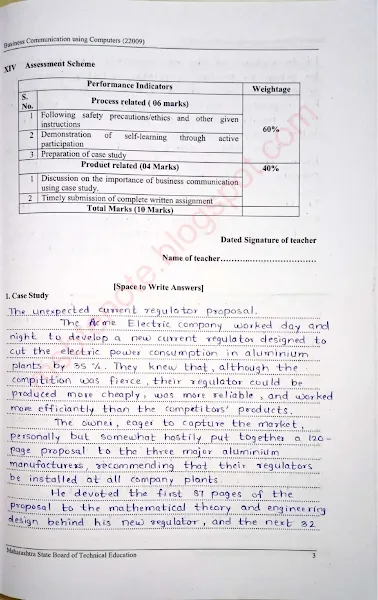 Business Communication using Computers (22009)
XIV Assessment Scheme
Performance Indicators Weightage
S. No. Process related ( 06 marks) 60%
1 Following safety precautions/ethics and other given
instructions
2 Demonstration of self-learning through active
participation
3 Preparation of case study
Product related (04 Marks) 40%
1 Discussion on the importance of business communication
using case study.
2 Timely submission of complete written assignment
Total Marks (10 Marks)
Dated Signature of teacher
Name of teacher................................
[Space to Write Answers]
1. Case Study
The unexpected current regulator proposal.
The Acme Electric company worked day and
night to develop a new current regulator designed to
cut the electric power consumption in aluminium
plants by 35 %. They knew that, although the
compitition was fierce, their regulator could be
produced more cheaply, was more reliable, and worked
more efficiantly than the competitors' products.
The owner, eager to capture the market,
personally but somewhat hastily put together a 120-
page proposal to the three major aluminium
manufacturers, recommending that their regulators
be installed at all company plants.
He devoted the first 87 pages of the
proposal to the mathematical theory and engineering
design behind his new regulator, and the next 32
Maharashtra State Board of Technical Education 3